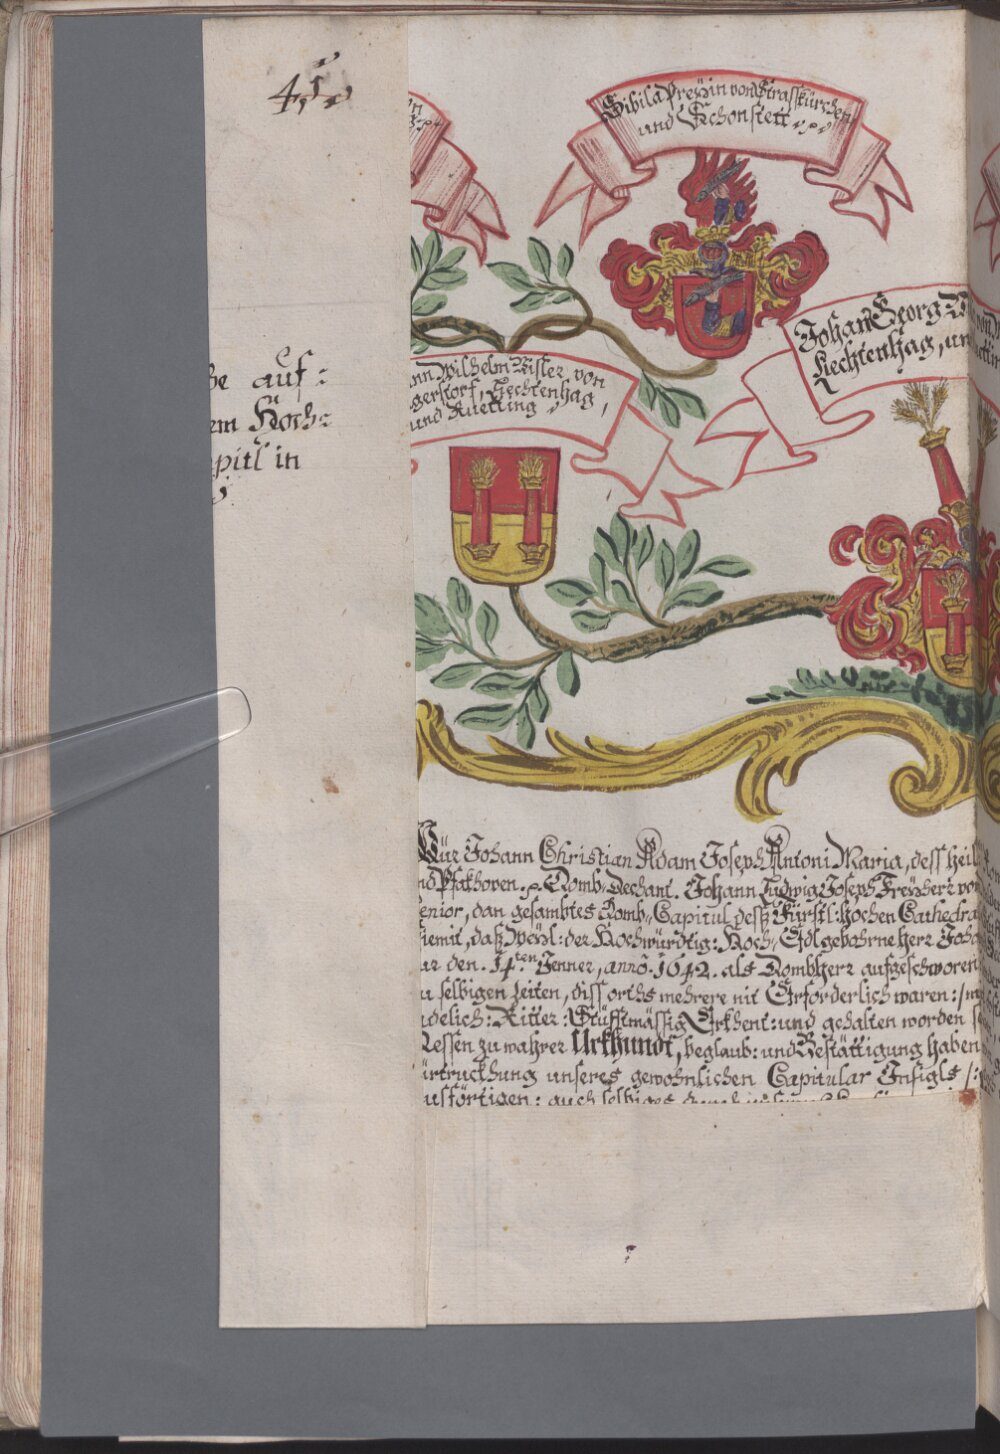 Sibila Preÿin von Strasskürchen
und Schonstett
Johan Georg
Hechtenhag, un
Wilhelm Wisler von
gerstorf, Hechtenhag,
und Rüetting
auf:
em Hoch:
pitl in
Wür Johann Christian Adam Joseph Antoni Maria, dess heil
nd Pfakhoven. Domb-Dechant. Johann Ludwig Joseph Freÿherr von
enior, dan gesambtes Domb-Capitul dess Fürstl: hochen Cathedra
hiemit, daß Weÿl: der Hochwürdtig: Hoch-Edlgebohrne Herr Joha
ar den. 14.ten Jenner, anno. 1642. als Dombherr aufgeschworen
u selbigen Zeiten, diss orths mehrere nit Erforderlich waren:/
delich: Ritter: Stüfftmässig Erkhent: und gehalten worden
Dessen zu wahrer Urkhundt, beglaub: und Bestättigung haben
ürtruckhung unseres gewohnlichen Capitular Insigls /:
usförtigen: auch selbiges